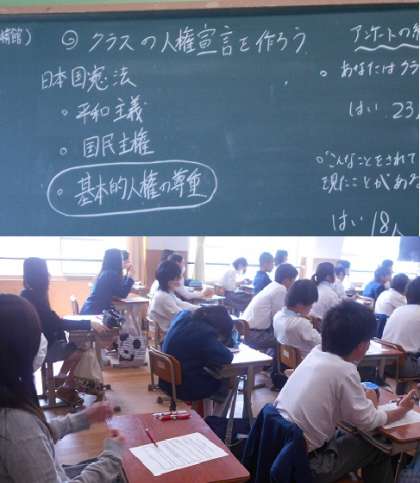 崎館)
◎クラスの人権宣言を作ろう
日本国憲法
・平和主義
・国民主権
・基本的人権の尊重
アンケートの結
・あなたはクラ
はい 23人
○こんなことをされて
見たことがある
はい 18人